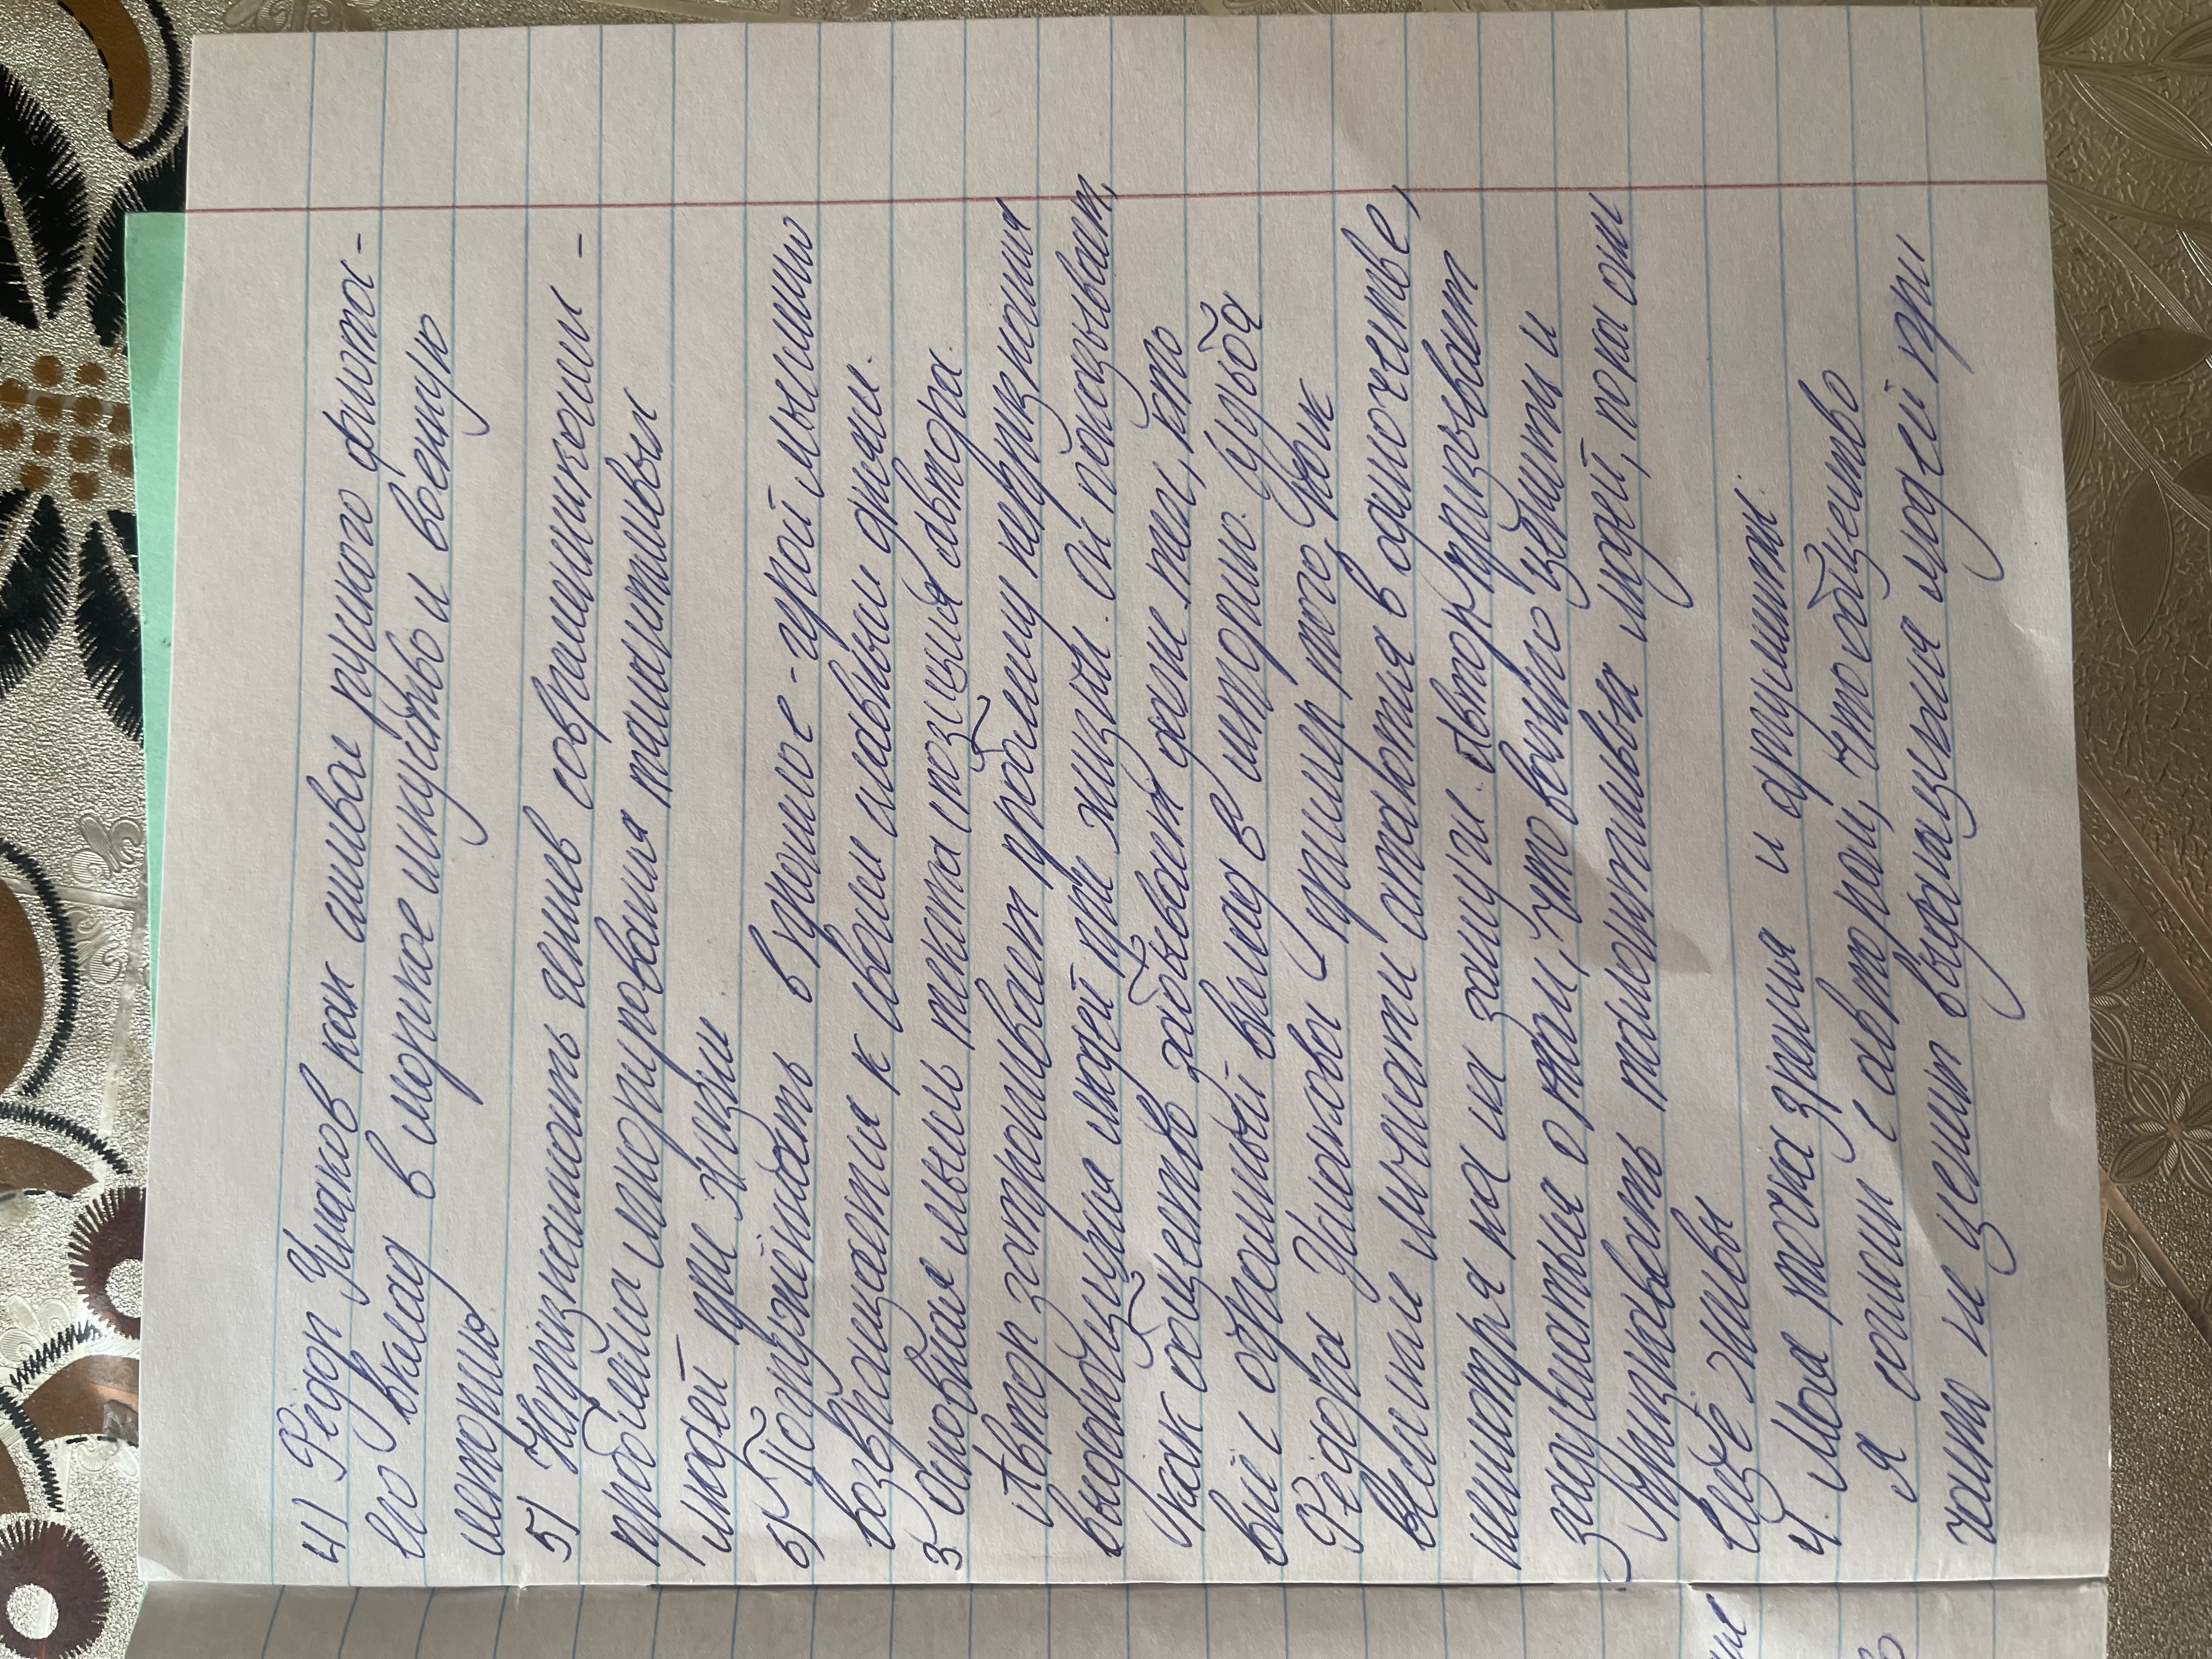 4) Фёдор Ушаков как символ руского флота -
его вклад в морское искуство и военную
историю
5) Непризнаность гениев современниками -
проблема игнорирования талантливых
людей при жизни
6) Погружённость в прошлое - герой мыслино
возвращается к своим славным дням.
3 Основная мысль текста (позиция автора.
Автор затрогивает проблему непризнания
выдающихся людей при жизни. Он показывает,
как общество забывает даже тех, кто
внёс огромный вклад в историю. Судьба
Фёдора Ушакова - пример того, как
великие личности остаются в одиночестве,
несмотря на их заслуги. Автор призывает
задуматься о том, что важно ценить и
признавать талантливых людей, пока они
ещё живы
4. Моя точка зрения и аргументы.
Я согласен с автором, что общество
часто не ценит выдающихся людей при